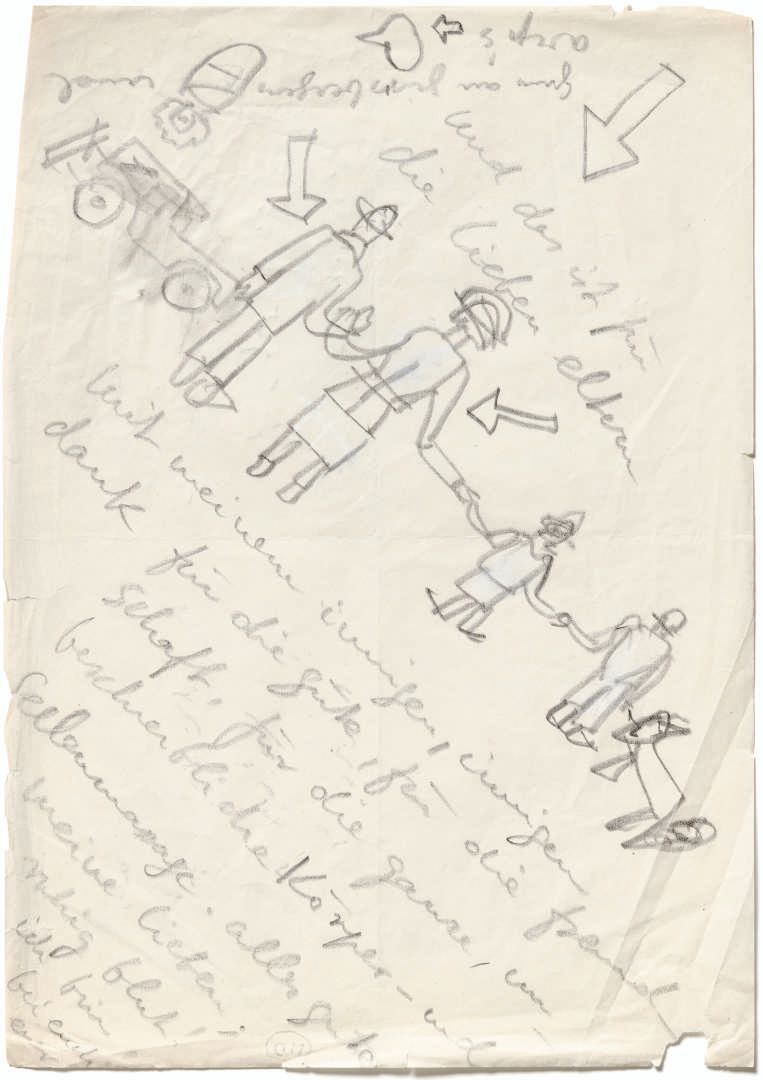 arp's
und
und das ist für
die lieben eltern
mit meinem innigen, innigen
dank für die güte, für die freund-
schaft, für die ganze, un-
beschreibliche Körper- und
Seelenmassage. alles gute
meine lieben!
ruhig blut!
ich bin
bei euch